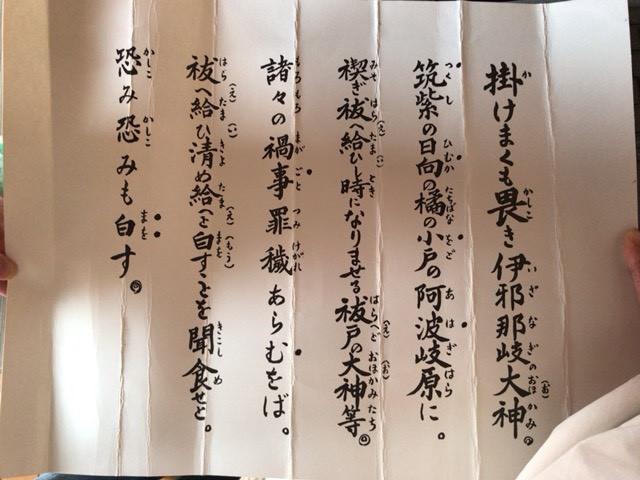 掛けまくも畏き伊邪那岐大神
筑紫の日向の橘の小戸の阿波岐原に。
禊ぎ祓へ給ひし時になりませる祓戸の大神等
諸々の禍事罪穢あらむをば。
祓へ給ひ清め給へと白すことを聞食せと。
恐み恐みも白す